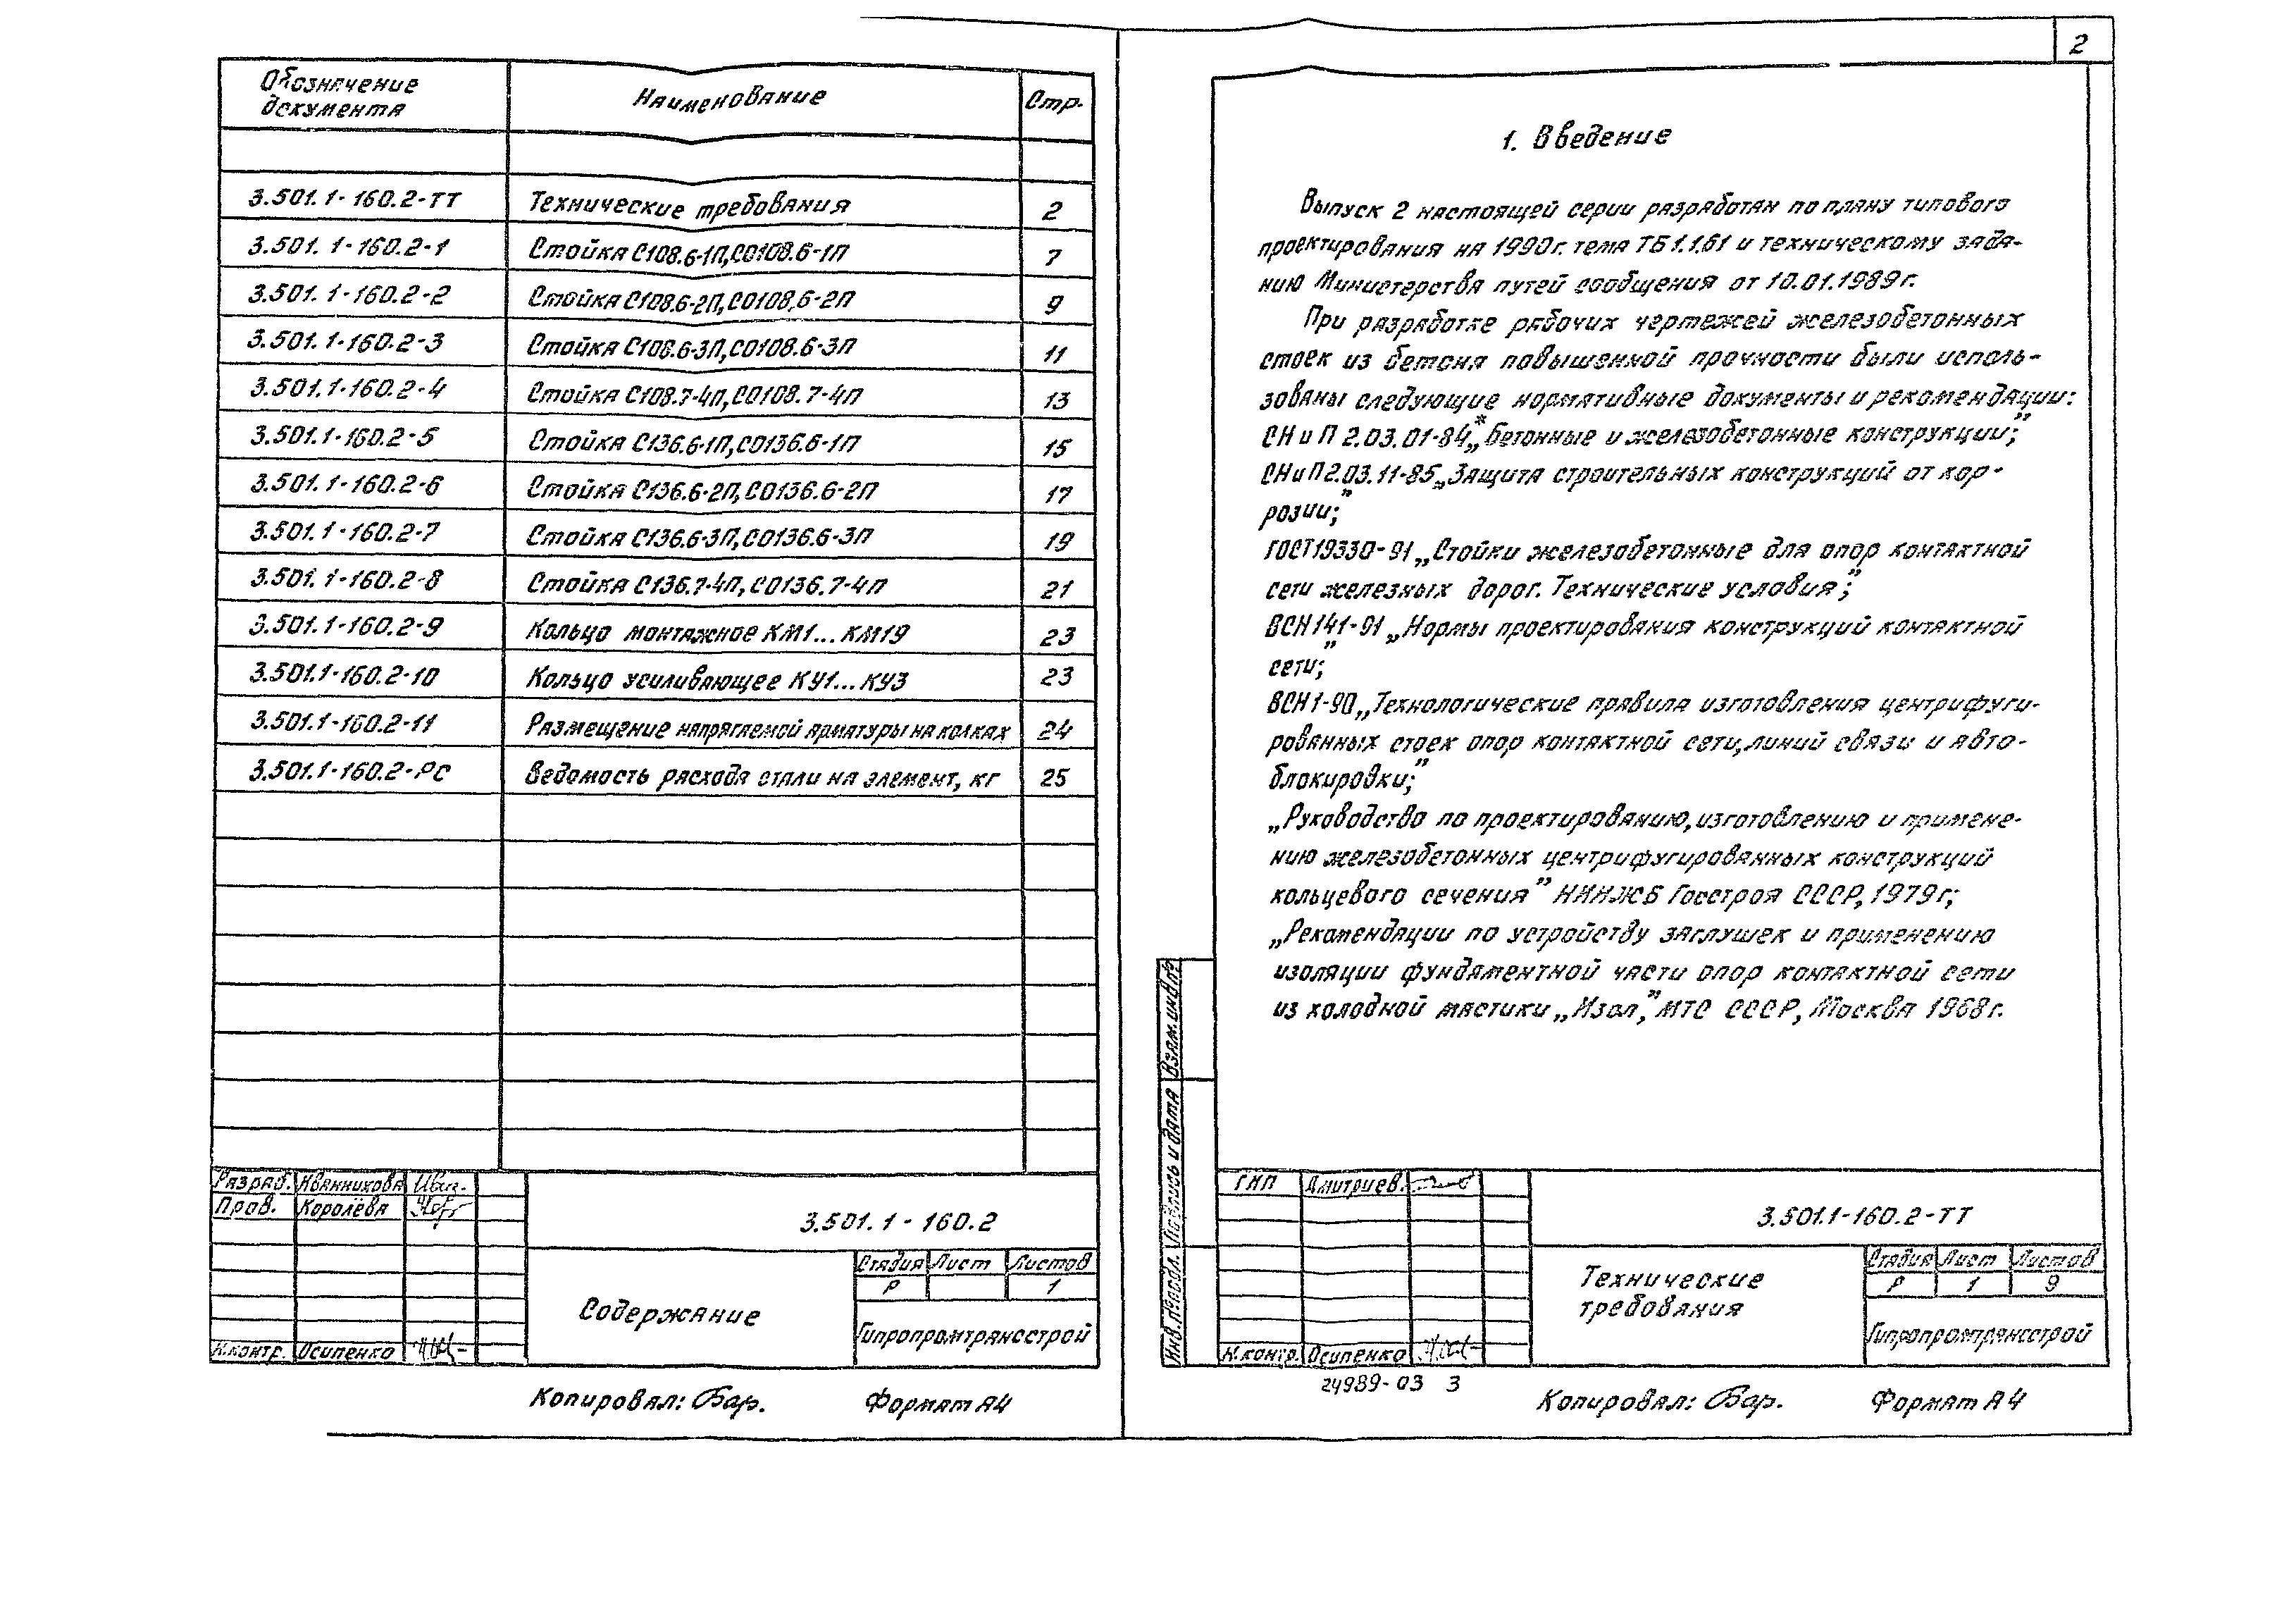 Обозначение документа Наименование Стр.
3.501.1-160.2-ТТ Технические требования 2
3.501.1-160.2-1 Стойка С108.6-1П, СО108.6-1П 7
3.501.1-160.2-2 Стойка С108.6-2П, СО108.6-2П 9
3.501.1-160.2-3 Стойка С108.6-3П, СО108.6-3П 11
3.501.1-160.2-4 Стойка С108.7-4П, СО108.7-4П 13
3.501.1-160.2-5 Стойка С136.6-1П, СО136.6-1П 15
3.501.1-160.2-6 Стойка С136.6-2П, СО136.6-2П 17
3.501.1-160.2-7 Стойка С136.6-3П, СО136.6-3П 19
3.501.1-160.2-8 Стойка С136.7-4П, СО136.7-4П 21
3.501.1-160.2-9 Кольцо монтажное КМ1...КМ19 23
3.501.1-160.2-10 Кольцо усиливающее КУ1...КУ3 23
3.501.1-160.2-11 Размещение напрягаемой арматуры на колках 24
3.501.1-160.2-РС Ведомость расхода стали на элемент, кг 25
Разраб. Иванникова
Пров. Королёва
3.501.1-160.2
Содержание
Стадия Лист Листов
Р 1
Гипропромтрансстрой
Н.контр. Осипенко
Копировал: Бар. Формат А4
2
1. Введение
Выпуск 2 настоящей серии разработан по плану типового
проектирования на 1990г. тема ТБ1.1.61 и техническому зада-
нию Министерства путей сообщения от 10.01.1989г.
При разработке рабочих чертежей железобетонных
стоек из бетона повышенной прочности были исполь-
зованы следующие нормативные документы и рекомендации:
СНиП 2.03.01-84* „Бетонные и железобетонные конструкции";
СНиП 2.03.11-85 „Защита строительных конструкций от кор-
розии";
ГОСТ 19330-91 „Стойки железобетонные для опор контактной
сети железных дорог. Технические условия";
ВСН 141-91 „Нормы проектирования конструкций контактной
сети";
ВСН 1-90 „Технологические правила изготовления центрифуги-
рованных стоек опор контактной сети, линий связи и авто-
блокировки";
„Руководство по проектированию, изготовлению и примене-
нию железобетонных центрифугированных конструкций
кольцевого сечения" НИИЖБ Госстроя СССР, 1979г;
„Рекомендации по устройству заглушек и применению
изоляции фундаментной части опор контактной сети
из холодной мастики „Изол", МТС СССР, Москва 1968г.
Взам.инв.№
Подпись и дата
Инв.№ подл.
ГИП Дмитриев
3.501.1-160.2-ТТ
Технические
требования
Стадия Лист Листов
Р 1 9
Гипропромтрансстрой
Н.контр. Осипенко
24989-03 3
Копировал: Бар. Формат А4